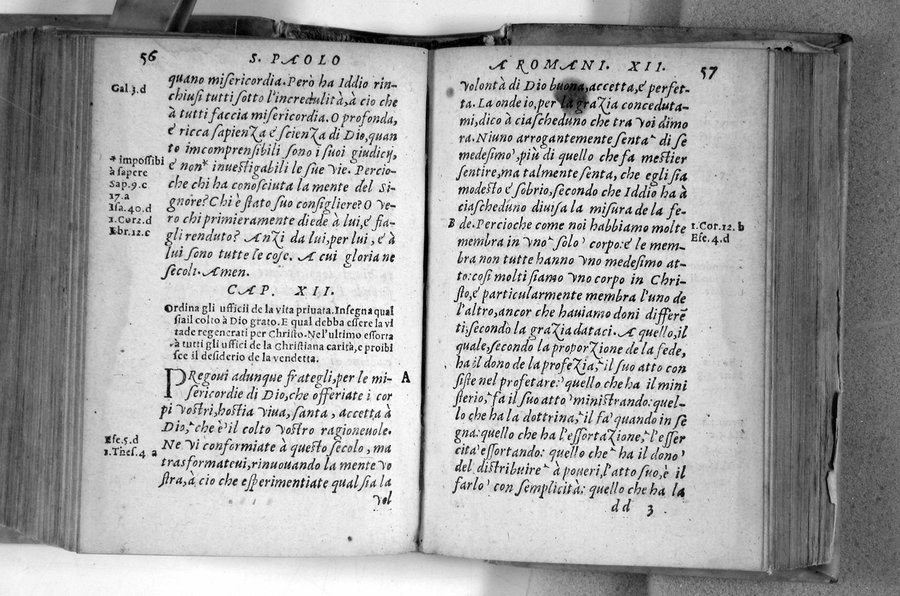 56
S. PAOLO
Gal.3.d
quano misericordia. Però ha Iddio rin-
chiusi tutti sotto l'incredulità, à cio che
à tutti faccia misericordia. O profonda,
é ricca sapienza é scienza di Dio, quan
to imcomprensibili sono i suoi giudicij,
* impossibi
à sapere
é non* inuestigabili le sue vie. Percio-
Sap.9.c
che chi ha conosciuta la mente del Si-
17.a
gnore? Chi è stato suo consigliere? O ve-
Isa.40.d
1.Cor2.d
ro chi primieramente diede à lui, é fia-
Ebr.12.c
gli renduto? Anzi da lui, per lui, é à
lui sono tutte le cose. A cui gloria ne
secoli. Amen.
CAP. XII.
Ordina gli ufficii de la vita priuata. Insegna qual
sia il colto à Dio grato. E qual debba essere la vi
ta de regenerati per Christo. Nel'ultimo essorta
à tutti gli uffici de la Christiana carità, e proibi
sce il desiderio de la vendetta.
PRegoui adunque frategli, per le mi-
A
sericordie di Dio, che offeriate i cor
pi vostri, hostia viua, santa, accetta à
Dio, che è il colto vostro ragioneuole.
Efe.5.d
Ne vi conformiate à questo secolo, ma
1.Thes.4 a
trasformateui, rinuouando la mente vo
stra, à cio che esperimentiate qual sia la
vol
A ROMANI. XII.
57
volontà di Dio buona, accetta, é perfet-
ta. La onde io, per la grazia conceduta-
mi, dico à ciascheduno che tra voi dimo
ra. Niuno arrogantemente senta di se
medesimo, più di quello che fa mestier
sentire, ma talmente senta, che egli sia
modesto é sobrio, secondo che Iddio ha à
ciascheduno diuisa la misura de la fe-
B
de. Percioche come noi habbiamo molte
1.Cor.12.b
membra in vno solo corpo: é le mem-
Efe.4.d
bra non tutte hanno vno medesimo at-
to: cosi molti siamo vno corpo in Chri-
sto, é particularmente membra l'uno de
l'altro, ancor che hauiamo doni differẽ
ti, secondo la grazia dataci. A quello, il
quale, secondo la proporzione de la fede,
ha il dono de la profezia, il suo atto con
siste nel profetare: quello che ha il mini
sterio, fa il suo atto ministrando: quel-
lo che ha la dottrina, il fa quando in se
gna: quello che ha l'essortazione, l'esser
cita essortando: quello che ha il dono
del distribuire à poueri, l'atto suo, è il
farlo con semplicità: quello che ha la
dd 3